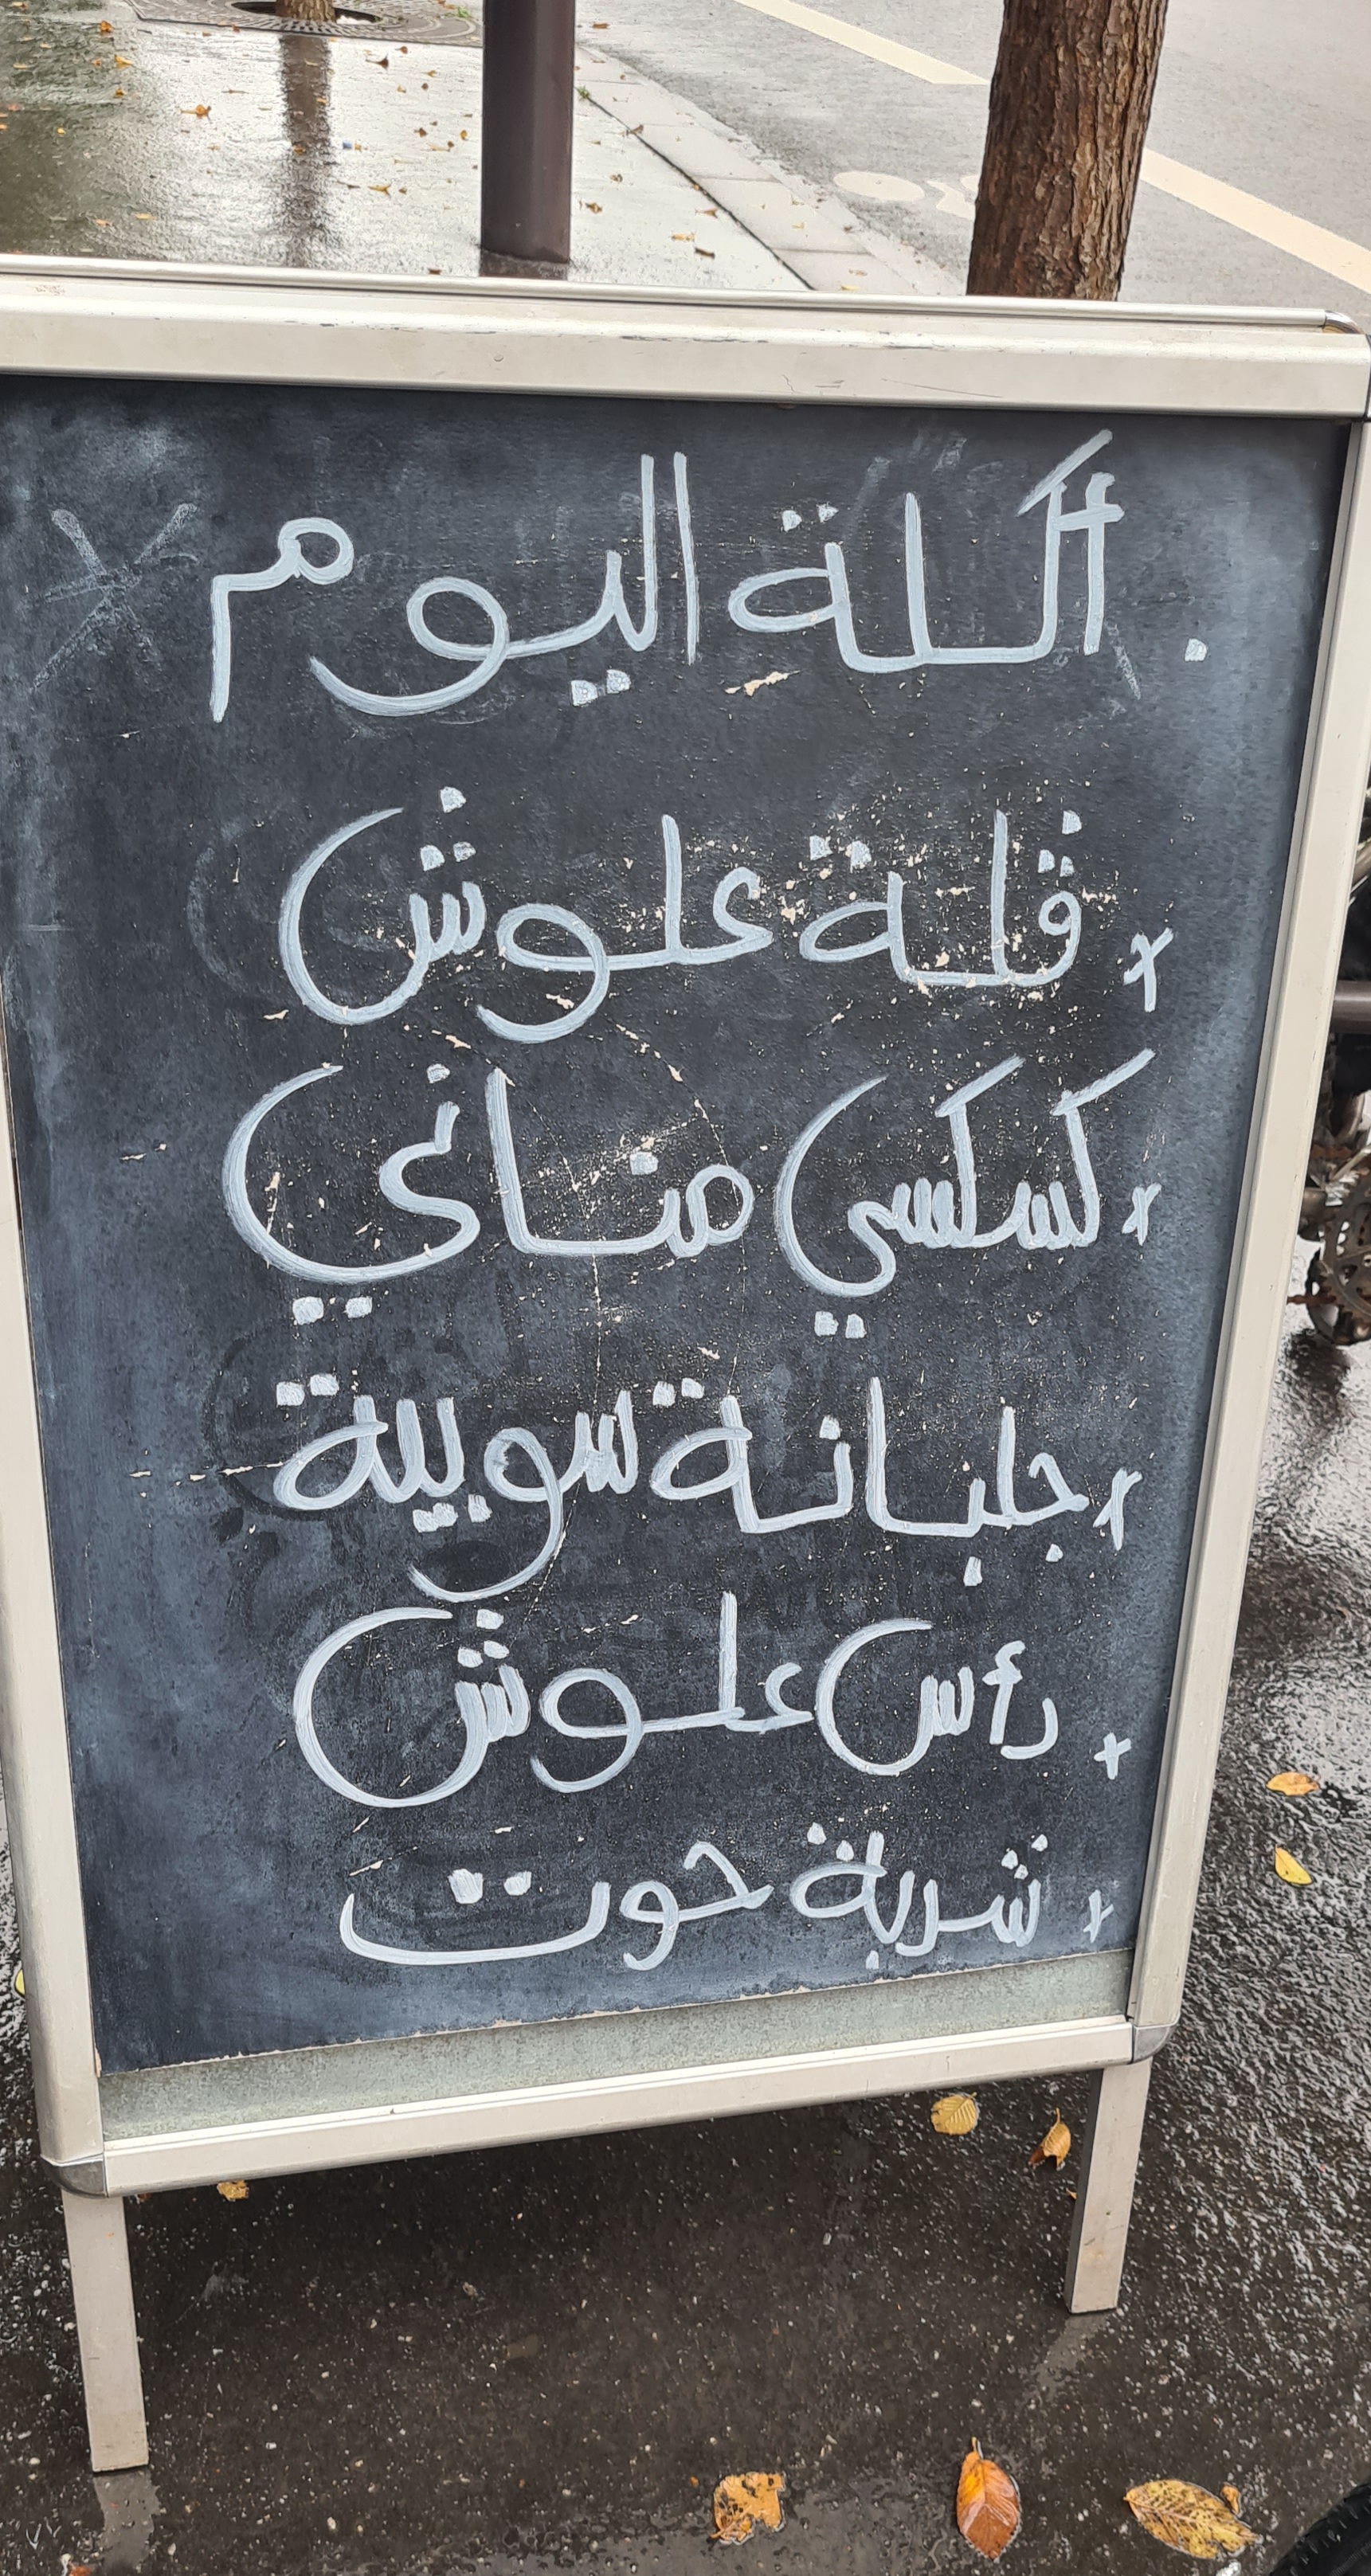 . أكلة اليوم
x ڨلة علوش
x كسكسي مناني
x جلبانة سوبية
+ رأس علوش
+ شربة حوت